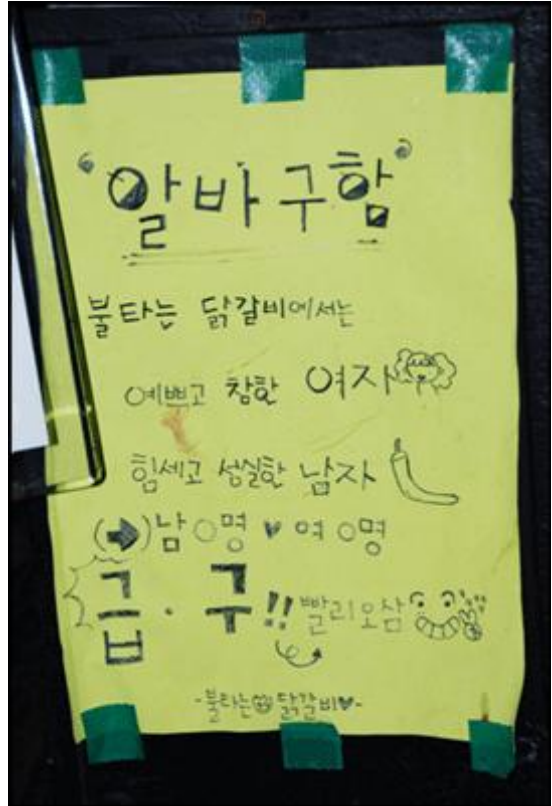 "알바구함"
불타는 닭갈비에서는
예쁘고 참한 여자
힘세고 성실한 남자
(➡)남 ○명 ♥ 여 ○명
급·구!! 빨리오삼
-불타는 닭갈비♥-